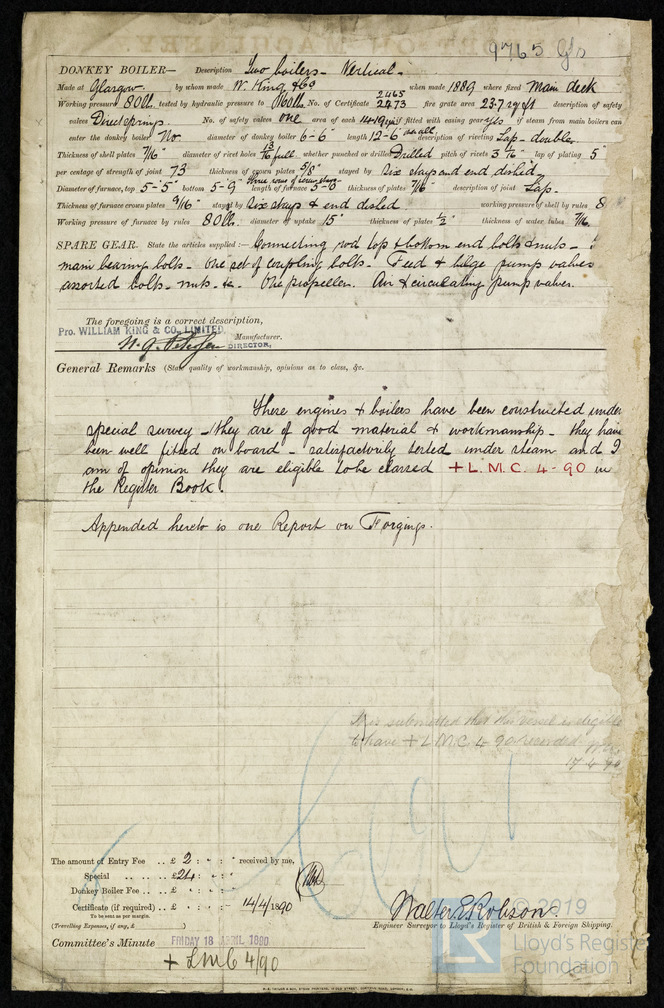 9765 Gls
DONKEY BOILER— Description Two boilers - Vertical -
Made at Glasgow by whom made W. King & Co when made 1889 where fixed Main deck
Working pressure 80 lb tested by hydraulic pressure to 160 lbs No. of Certificate 2465 2473 fire grate area 23.7 sq ft description of safety
valves Direct springs No. of safety valves one area of each 14.19 if fitted with easing gear yes if steam from main boilers can
enter the donkey boiler No diameter of donkey boiler 6-6" length 12-6" description of riveting Lap - double
Thickness of shell plates 7/16" diameter of rivet holes 13/16 full whether punched or drilled Drilled pitch of rivets 3 1/16" lap of plating 5"
per centage of strength of joint 73 thickness of crown plates 5/8" stayed by six stays and end dished
Diameter of furnace, top 5-5" bottom 5-9" length of furnace 5-0" thickness of plates 7/16" description of joint Lap
Thickness of furnace crown plates 9/16" stayed by six stays & end dished working pressure of shell by rules 8
Working pressure of furnace by rules 80 lb. diameter of uptake 15" thickness of plates 1/2" thickness of water tubes 7/16
SPARE GEAR. State the articles supplied:— Connecting rod top & bottom end bolts & nuts -
main bearing bolts - One set of coupling bolts - Feed & bilge pump valves
assorted bolts - nuts - &c - One propeller. Air & circulating pump valves.
The foregoing is a correct description,
Pro. WILLIAM KING & CO., LIMITED.
Manufacturer.
DIRECTOR.
General Remarks (State quality of workmanship, opinions as to class, &c.
These engines & boilers have been constructed under
special survey - they are of good material & workmanship - they have
been well fitted on board - satisfactorily tested under steam and I
am of opinion they are eligible to be classed + L.M.C. 4-90 in
the Register Book.
Appended hereto is one Report on Forgings.
It is submitted that this vessel is eligible
to have + L.M.C. 4-90 recorded
17.4.90
The amount of Entry Fee .. £ 2 : " : " received by me,
Special .. £ 24 : " : "
Donkey Boiler Fee .. £ " : " : "
Certificate (if required) .. £ " : " : " 14/4/1890
To be sent as per margin.
(Travelling Expenses, if any, £ )
Walter E Robson
Engineer Surveyor to Lloyd's Register of British & Foreign Shipping.
Committee's Minute FRIDAY 18 APRIL 1890
+ LMC 4/90
© 2019
LR
Lloyd's Register
Foundation